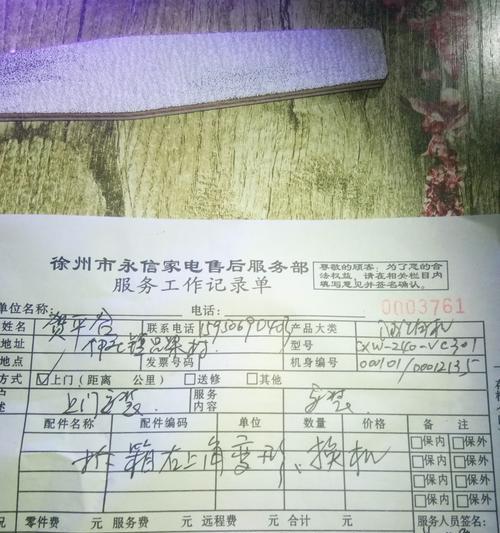 徐州市永信家电售后服务部
服务工作记录单
尊敬的顾客:为了您的合
法权益,请在相关栏目内
填写意见并签名确认。
单位名称: 电话: 0003761
姓名 联系电话 产品大类 油烟机
地址 型号 CXW-240-VC301
地点 发票号码 机身编号 000101/00012135
方式 ☑上门(距离 公里) □送修 □其他
户 述 上门安装 服务内容 安装
配件名称 配件编码 单位 数量 价格 备 注
拆箱右上角变形、换机
□保内 □保外
□保内 □保外
□保内 □保外
□保内 □保外
况 零件费 元 服务费 元 远程费 元 合计 元 服务人员签名